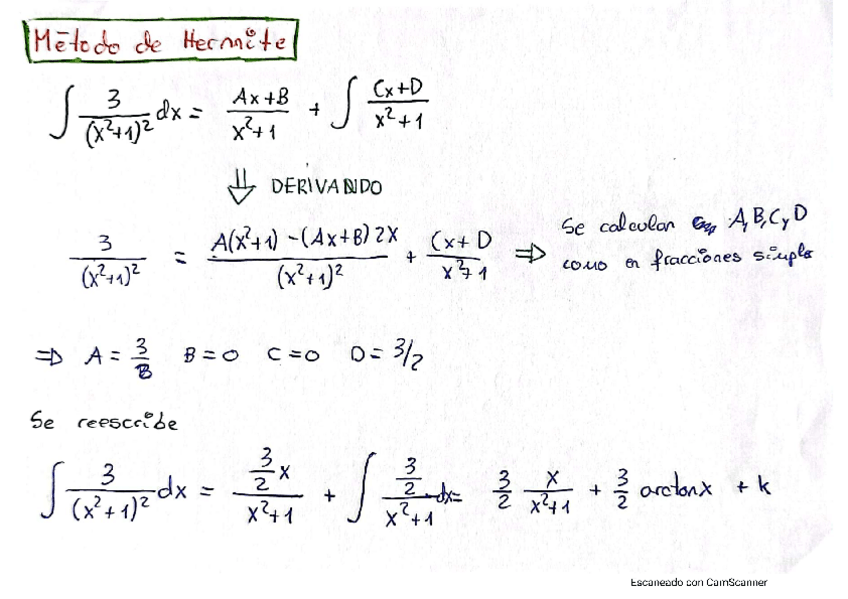 Método de Hermite
∫ 3/(x²+1)² dx = (Ax+B)/(x²+1) + ∫ (Cx+D)/(x²+1)
⇓ DERIVANDO
3/(x²+1)² = (A(x²+1) - (Ax+B) 2x)/(x²+1)² + (Cx+D)/(x²+1) ⇒ Se calculan A, B, C y D
como en fracciones simples
⇒ A = 3/2 B = 0 C = 0 D = 3/2
Se reescribe
∫ 3/(x²+1)² dx = (3/2 x)/(x²+1) + ∫ (3/2)/(x²+1) dx = 3/2 x/(x²+1) + 3/2 arctanx + k
Escaneado con CamScanner